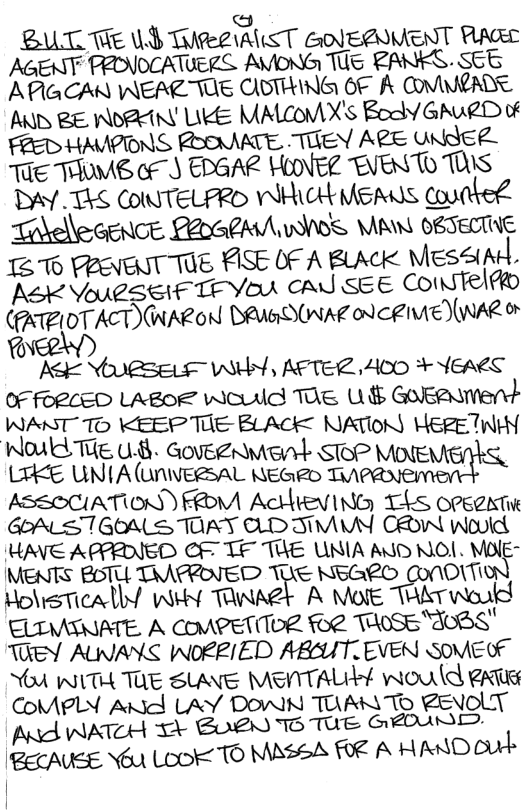 4
B.U.T. THE U.$ IMPERIALIST GOVERNMENT PLACED
AGENT PROVOCATUERS AMONG THE RANKS. SEE
A PIG CAN WEAR THE CLOTHING OF A COMMRADE
AND BE WORKIN' LIKE MALCOM X'S BODY GAURD OR
FRED HAMPTONS ROOMATE. THEY ARE UNDER
THE THUMB OF J EDGAR HOOVER EVEN TO THIS
DAY. ITS COINTELPRO WHICH MEANS COUNTER
INTELLEGENCE PROGRAM, WHO'S MAIN OBJECTIVE
IS TO PREVENT THE RISE OF A BLACK MESSIAH.
ASK YOURSELF IF YOU CAN SEE COINTELPRO
(PATRIOT ACT) (WAR ON DRUGS) (WAR ON CRIME) (WAR ON
POVERTY)
ASK YOURSELF WHY, AFTER, 400 + YEARS
OF FORCED LABOR WOULD THE U.$ GOVERNMENT
WANT TO KEEP THE BLACK NATION HERE? WHY
WOULD THE U.$. GOVERNMENT STOP MOVEMENTS
LIKE UNIA (UNIVERSAL NEGRO IMPROVEMENT
ASSOCIATION) FROM ACHIEVING ITS OPERATIVE
GOALS? GOALS THAT OLD JIMMY CROW WOULD
HAVE APPROVED OF. IF THE UNIA AND N.O.I. MOVE-
MENTS BOTH IMPROVED THE NEGRO CONDITION
HOLISTICALLY WHY THWART A MOVE THAT WOULD
ELIMINATE A COMPETITOR FOR THOSE "JOBS"
THEY ALWAYS WORRIED ABOUT. EVEN SOME OF
YOU WITH THE SLAVE MENTALITY WOULD RATHER
COMPLY AND LAY DOWN THAN TO REVOLT
AND WATCH IT BURN TO THE GROUND.
BECAUSE YOU LOOK TO MASSA FOR A HANDOUT